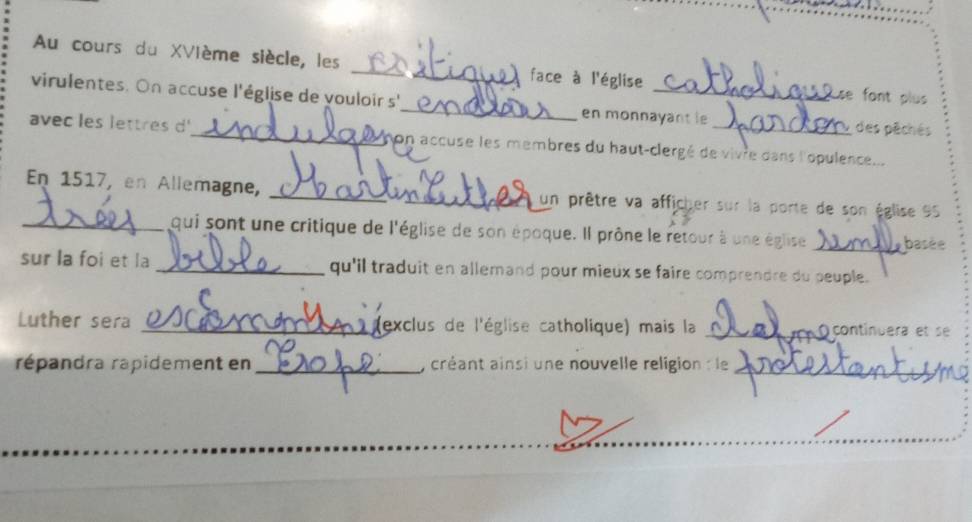 Au cours du XVIème siècle, les critiques face à l'église catholique se font plus
virulentes. On accuse l'église de vouloir s' en monnayant le pardon des péchés
avec les lettres d' indulgence on accuse les membres du haut-clergé de vivre dans l'opulence...
En 1517, en Allemagne, Martin Luther un prêtre va afficher sur la porte de son église 95
trées qui sont une critique de l'église de son époque. Il prône le retour à une église simple basée
sur la foi et la bible qu'il traduit en allemand pour mieux se faire comprendre du peuple.
Luther sera (exclus de l'église catholique) mais la continuera et se
répandra rapidement en Erope, créant ainsi une nouvelle religion : le protestantisme